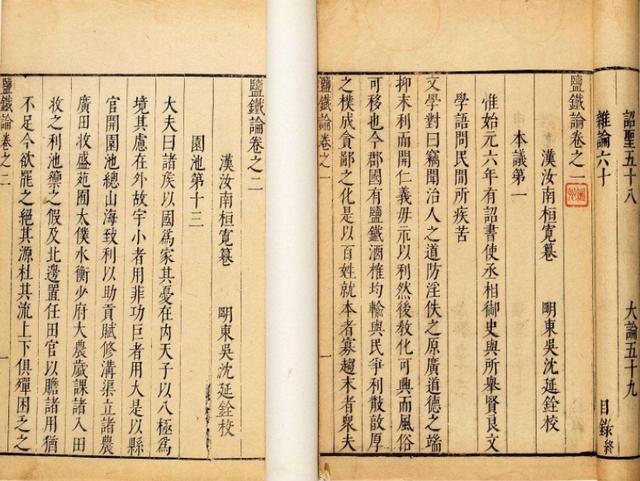 詔聖五十八 大論五十九
雜論六十 目錄終
鹽鐵論卷之一
漢汝南桓寬纂 明東吳沈延銓校
本議第一
惟始元六年有詔書使丞相御史與所舉賢良文
學語問民間所疾苦
文學對曰竊聞治人之道防淫佚之原廣道德之端
抑末利而開仁義毋示以利然後敎化可興而風俗
可移也今郡國有鹽鐵酒榷均輸與民爭利散敦厚
之樸成貪鄙之化是以百姓就本者寡趨末者衆夫
鹽鐵論卷之一 一
鹽鐵論卷之二
漢汝南桓寬纂 明東吳沈延銓校
園池第十三
大夫曰諸矦以國爲家其憂在內天子以八極爲
境其慮在外故宇小者用非功巨者用大是以縣
官開園池總山海致利以助貢賦修溝渠立諸農
廣田牧盛苑囿太僕水衡少府大農歲課諸入田
牧之利池籞之假及北邊置任田官以贍諸用猶
不足今欲罷之絕其源杜其流上下俱殫困乏之
鹽鐵論卷之二 一